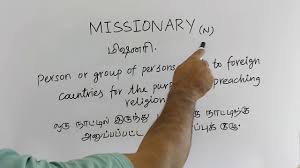 MISSIONARY (N)
மிஷனரி.
Person or group of persons to foreign
countries for the purp preaching
religion
ஒரு நாட்டில் இருந்து நாட்டிற்கு
அனுப்பப்பட்ட குழு.